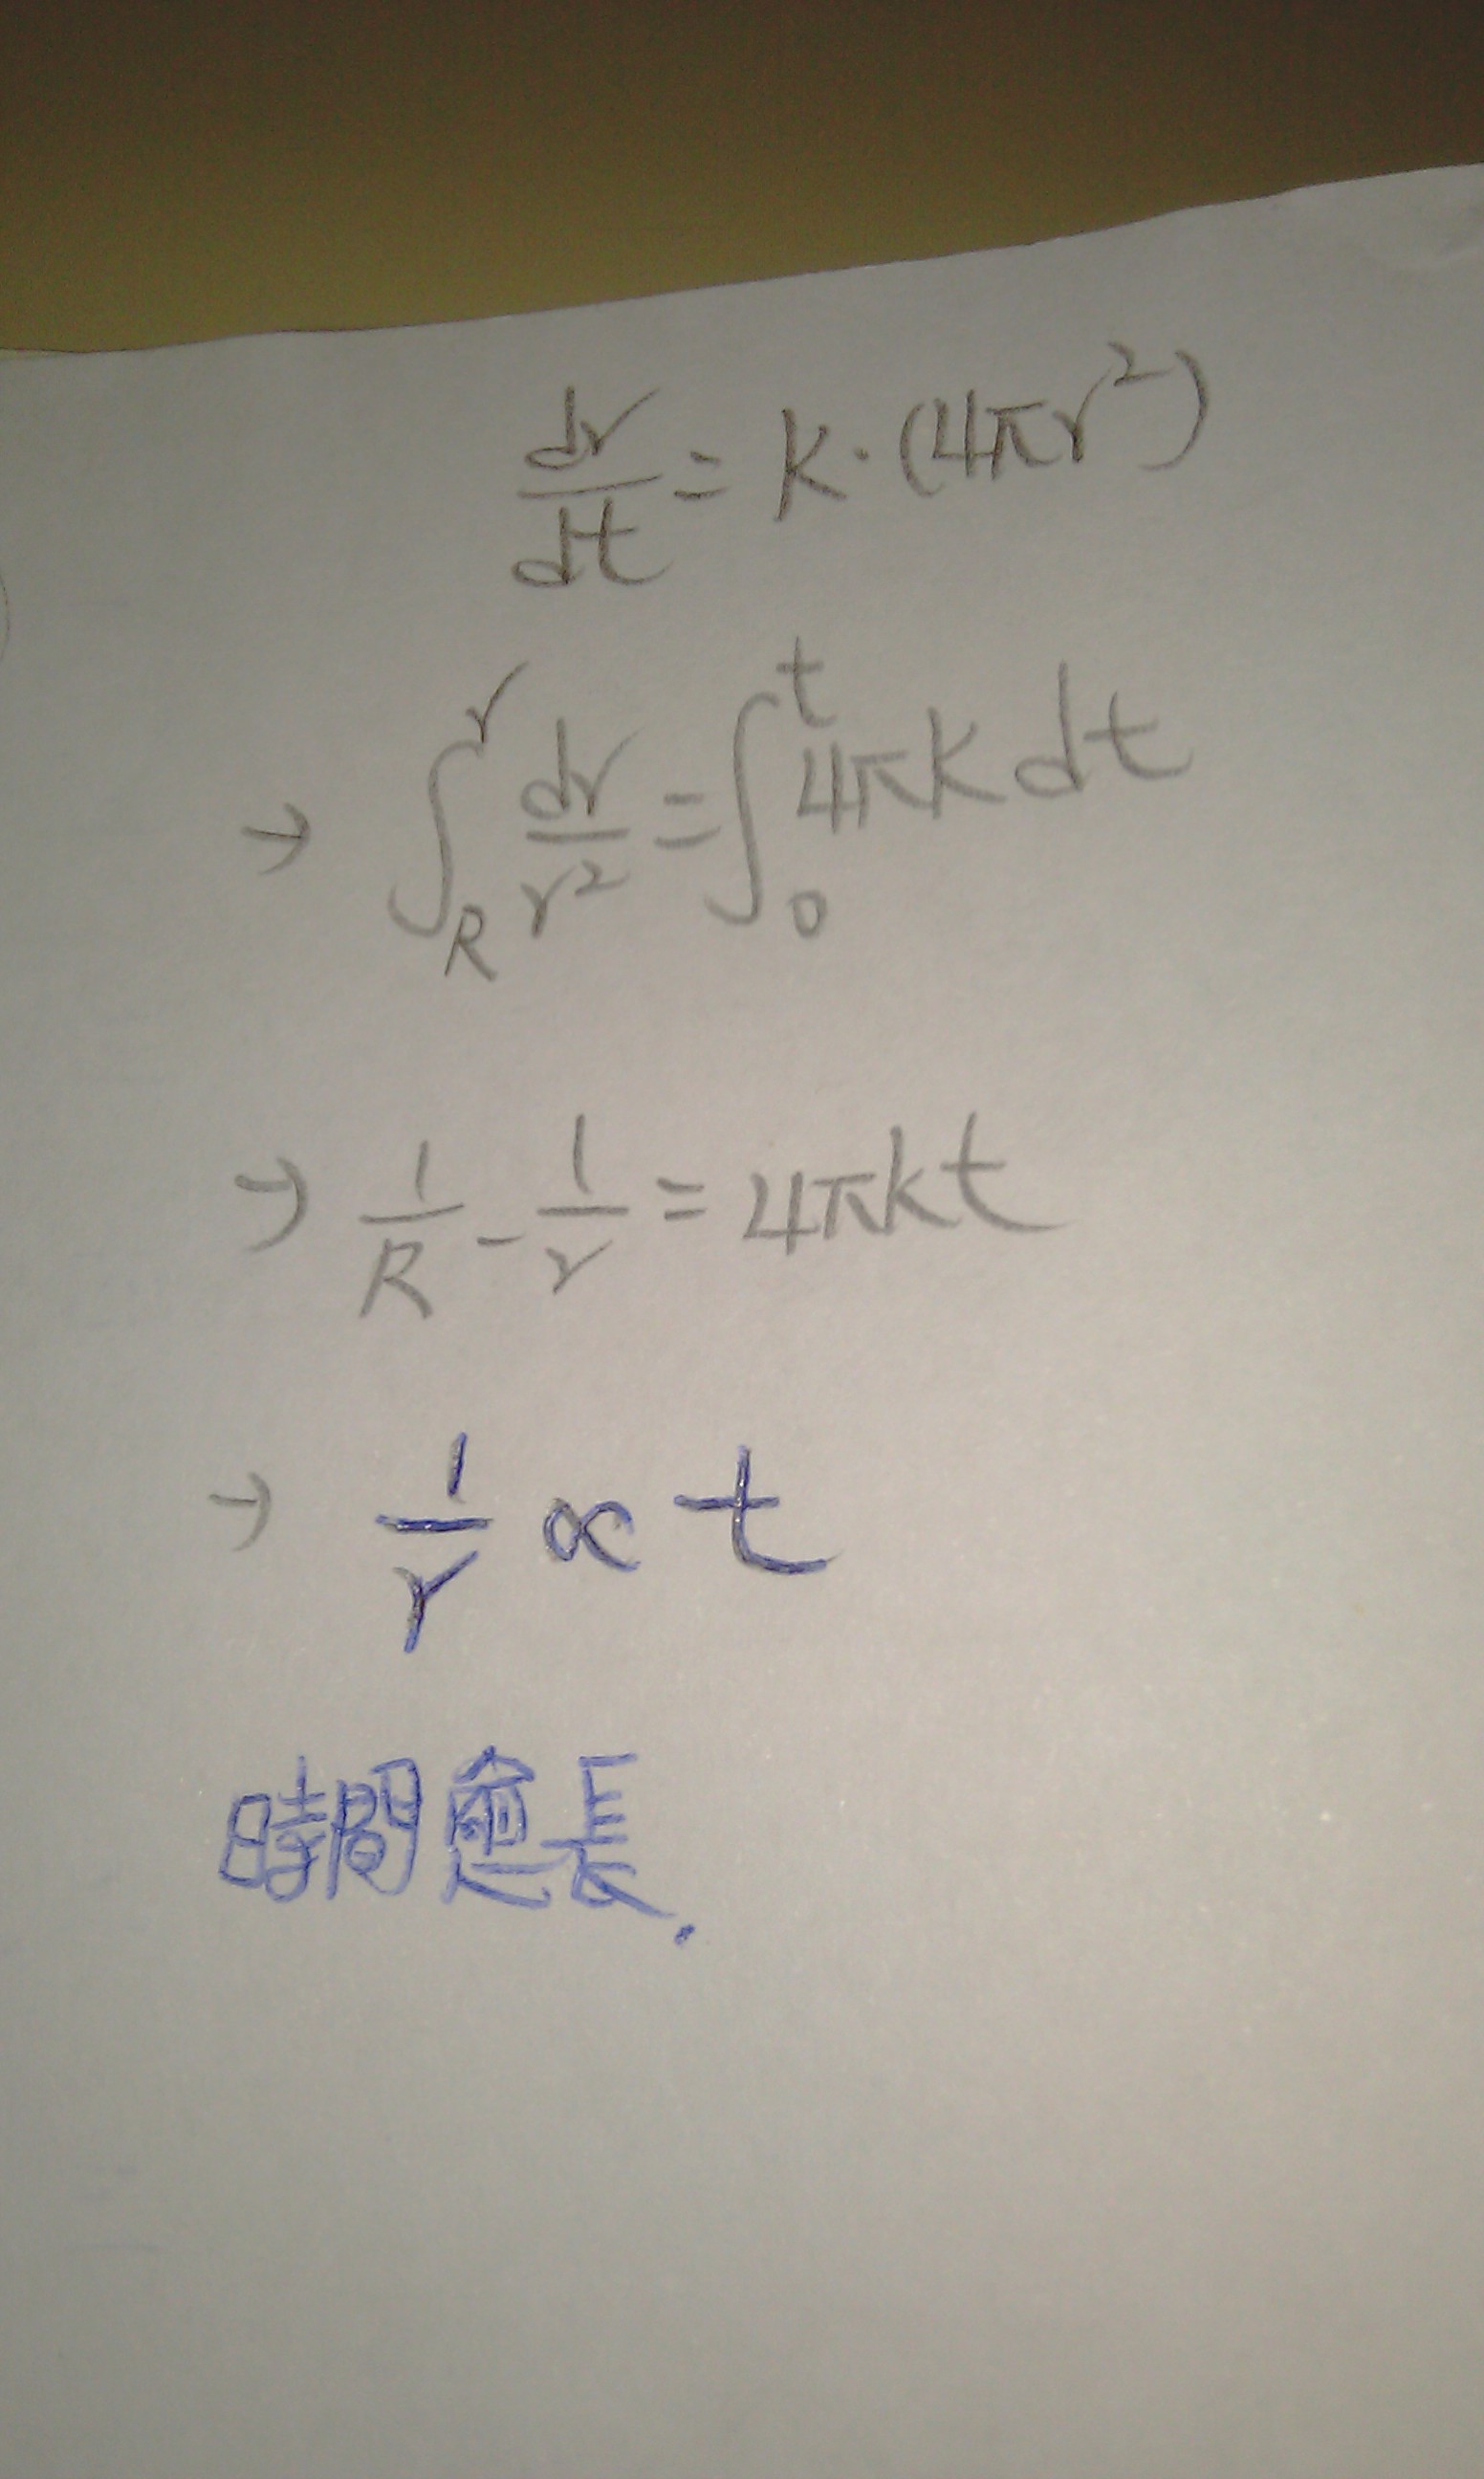 dr/dt = k·(4πr²)
→ ∫_R^r dr/r² = ∫_0^t 4πk dt
→ 1/R - 1/r = 4πkt
→ 1/r ∝ t
時間愈長.